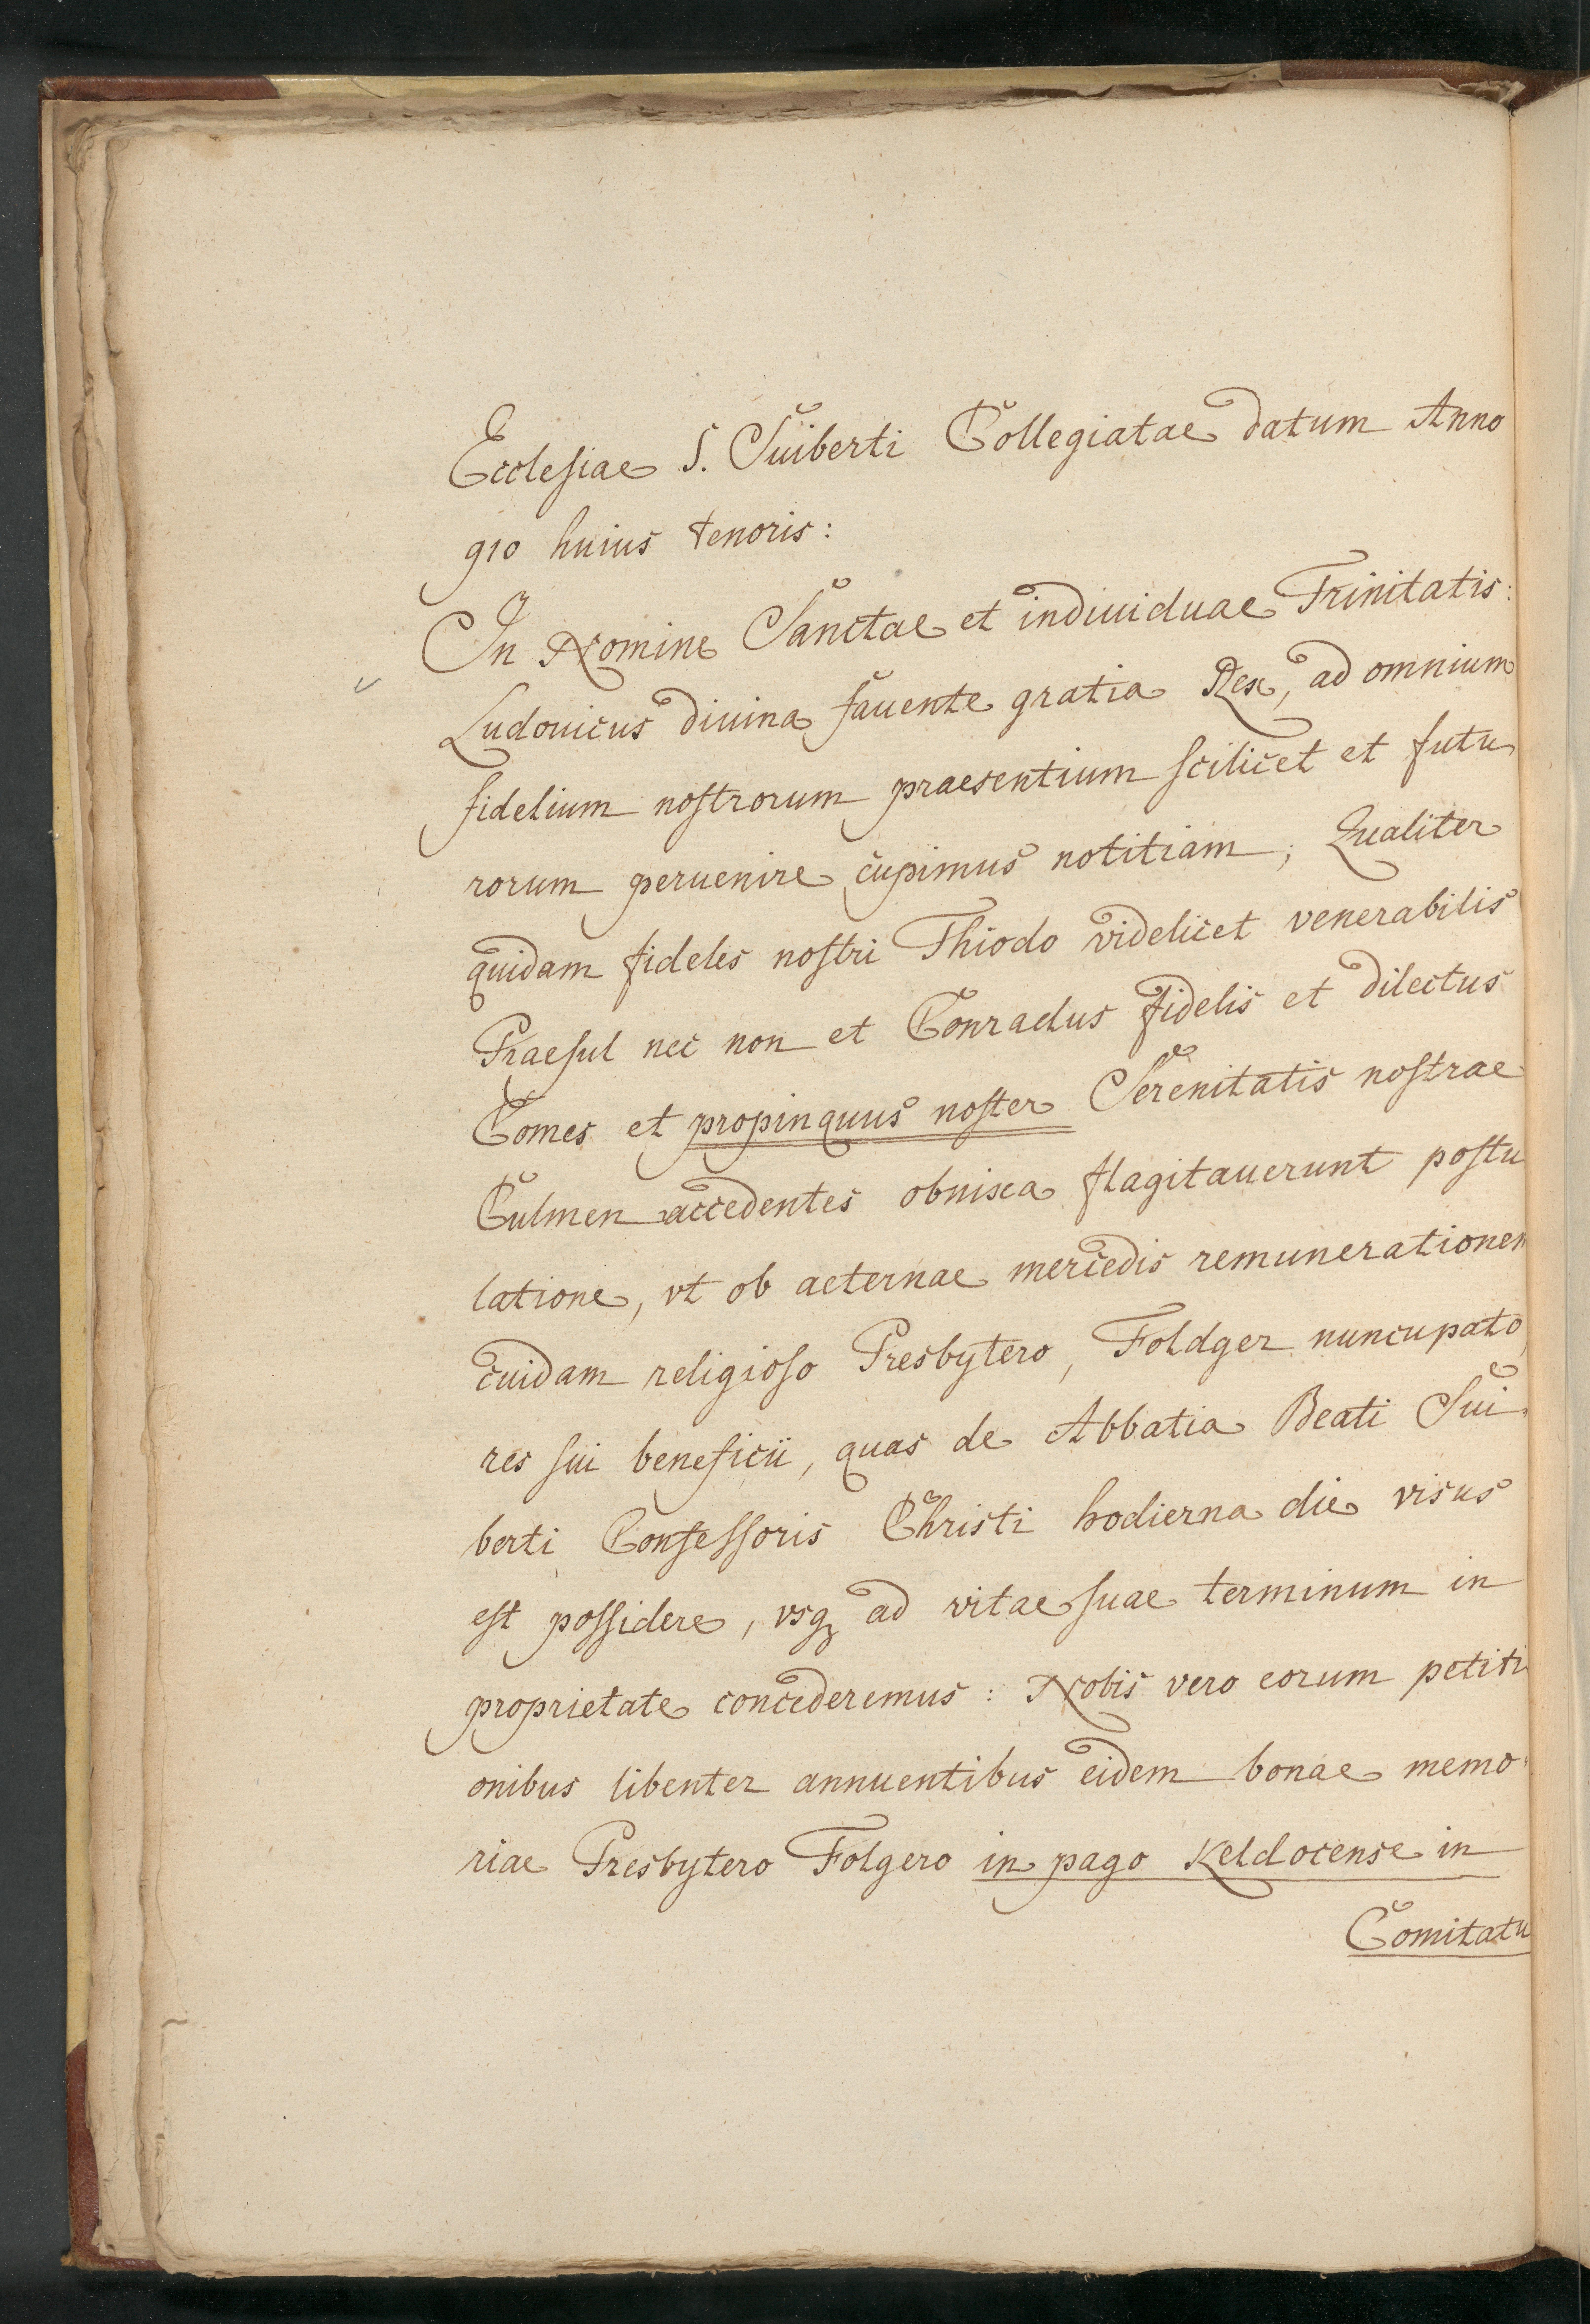 Ecclesiae S. Suiberti Collegiatae datum Anno
910 huius tenoris:
In Nomine Sanctae et indiuiduae Trinitatis:
Ludouicus diuina fauente gratia Rex, ad omnium
fidelium nostrorum praesentium scilicet et futu
rorum peruenire cupimus notitiam, Qualiter
quidam fideles nostri Thiodo videlicet venerabilis
Praesul nec non et Conradus fidelis et dilectus
Comes et propinquus noster Serenitatis nostrae
Culmen accedentes obnixa flagitauerunt postu
latione, vt ob aeternae mercedis remunerationem
cuidam religioso Presbytero, Foldger nuncupato,
res sui beneficii, quas de Abbatia Beati Sui
berti Confessoris Christi hodierna die visus
est possidere, vsq ad vitae suae terminum in
proprietate concederemus: Nobis vero eorum petiti
onibus libenter annuentibus eidem bonae memo
riae Presbytero Folgero in pago Keldocense in
Comitatu